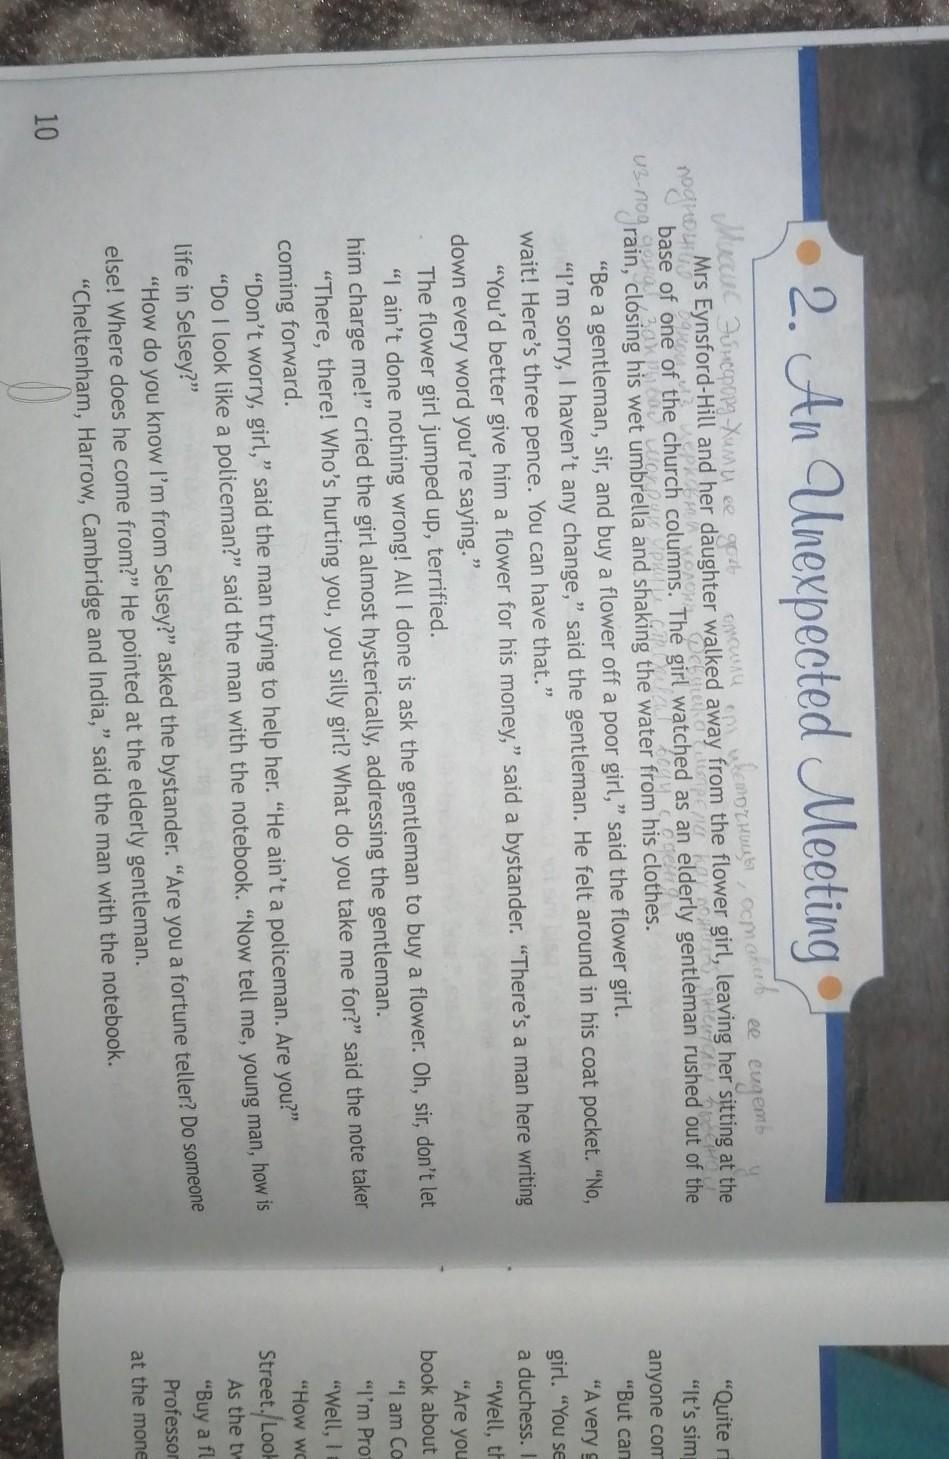 2. An Unexpected Meeting
Mrs Eynsford-Hill and her daughter walked away from the flower girl, leaving her sitting at the
base of one of the church columns. The girl watched as an elderly gentleman rushed out of the
rain, closing his wet umbrella and shaking the water from his clothes.
“Be a gentleman, sir, and buy a flower off a poor girl,” said the flower girl.
“I'm sorry, I haven't any change,” said the gentleman. He felt around in his coat pocket. “No,
wait! Here's three pence. You can have that.”
“You'd better give him a flower for his money,” said a bystander. “There's a man here writing
down every word you're saying.”
The flower girl jumped up, terrified.
“I ain't done nothing wrong! All I done is ask the gentleman to buy a flower. Oh, sir, don't let
him charge me!” cried the girl almost hysterically, addressing the gentleman.
“There, there! Who's hurting you, you silly girl? What do you take me for?” said the note taker
coming forward.
“Don't worry, girl,” said the man trying to help her. “He ain't a policeman. Are you?”
“Do I look like a policeman?” said the man with the notebook. “Now tell me, young man, how is
life in Selsey?”
“How do you know I'm from Selsey?” asked the bystander. “Are you a fortune teller? Do someone
else! Where does he come from?” He pointed at the elderly gentleman.
“Cheltenham, Harrow, Cambridge and India,” said the man with the notebook.
10
Миссис Эйнсфорд-Хилл ее дочь отошли от цветочницы, оставив ее сидеть у
из-под
“Quite
“It's
anyone
“But can
“A very
girl. “You
a duchess. I
“Well,
“Are you
book about
“I am
“I'm
“Well, I
“How
Street.
As the
“Buy a
Professor
at the